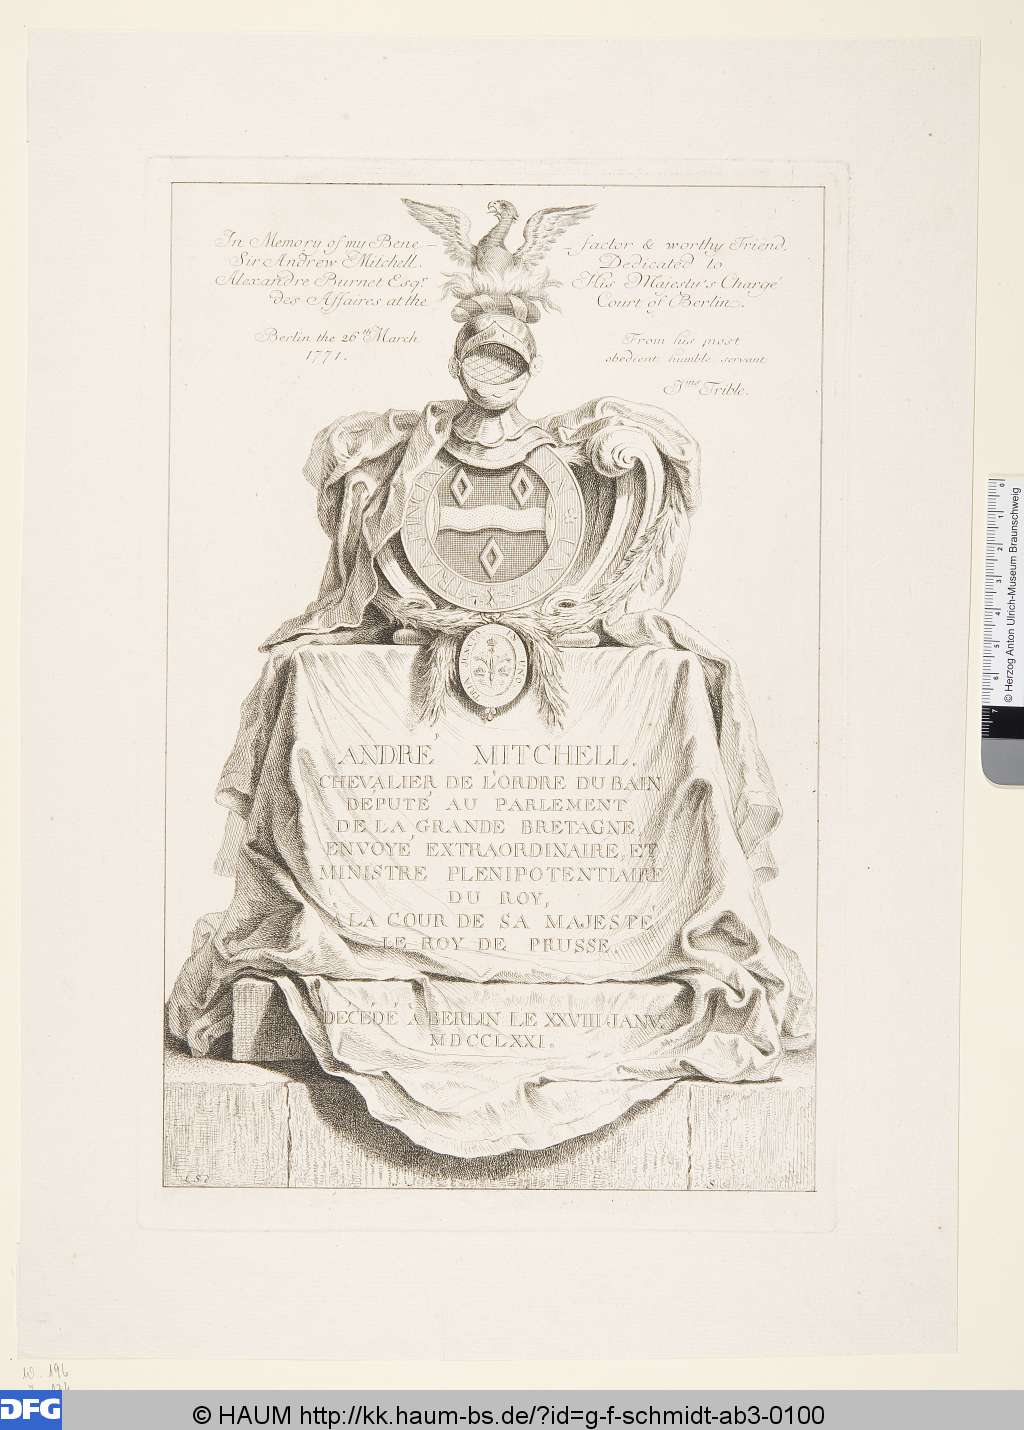 In Memory of my Bene – – factor & worthy Friend,
Sir Andrew Mitchell. Dedicated to
Alexandre Burnet Esqr. His Majesty's Chargé
des Affaires at the Court of Berlin.
Berlin the 26th March From his most
1771. obedient humble servant
Jms Trible.
ANDRÉ MITCHELL.
CHEVALIER DE L'ORDRE DU BAIN
DÉPUTÉ AU PARLEMENT
DE LA GRANDE BRETAGNE,
ENVOYÉ EXTRAORDINAIRE, ET
MINISTRE PLENIPOTENTIAIRE
DU ROY,
À LA COUR DE SA MAJESTÉ
LE ROY DE PRUSSE.
DÉCÉDÉ À BERLIN LE XXVIII JANV.
MDCCLXXI.
© Herzog Anton Ulrich-Museum Braunschweig
0 1 2 3 4 5 6 7
W. 196
DFG
© HAUM http://kk.haum-bs.de/?id=g-f-schmidt-ab3-0100